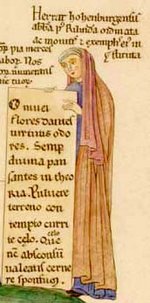 Herrat hohenburgensis
abba p Rilinda ordinata
ac monitis & exemplis ei
instituta
pia mercei
labor. Nos
numerans
O nivei
flores dantes
virtutis odo
res. Semp
divina pau
santes in theo
ria. Pulvere
terreno con
tempto curri
te celo. Que
nc absconsu
valeatis cerne
re sponsu.